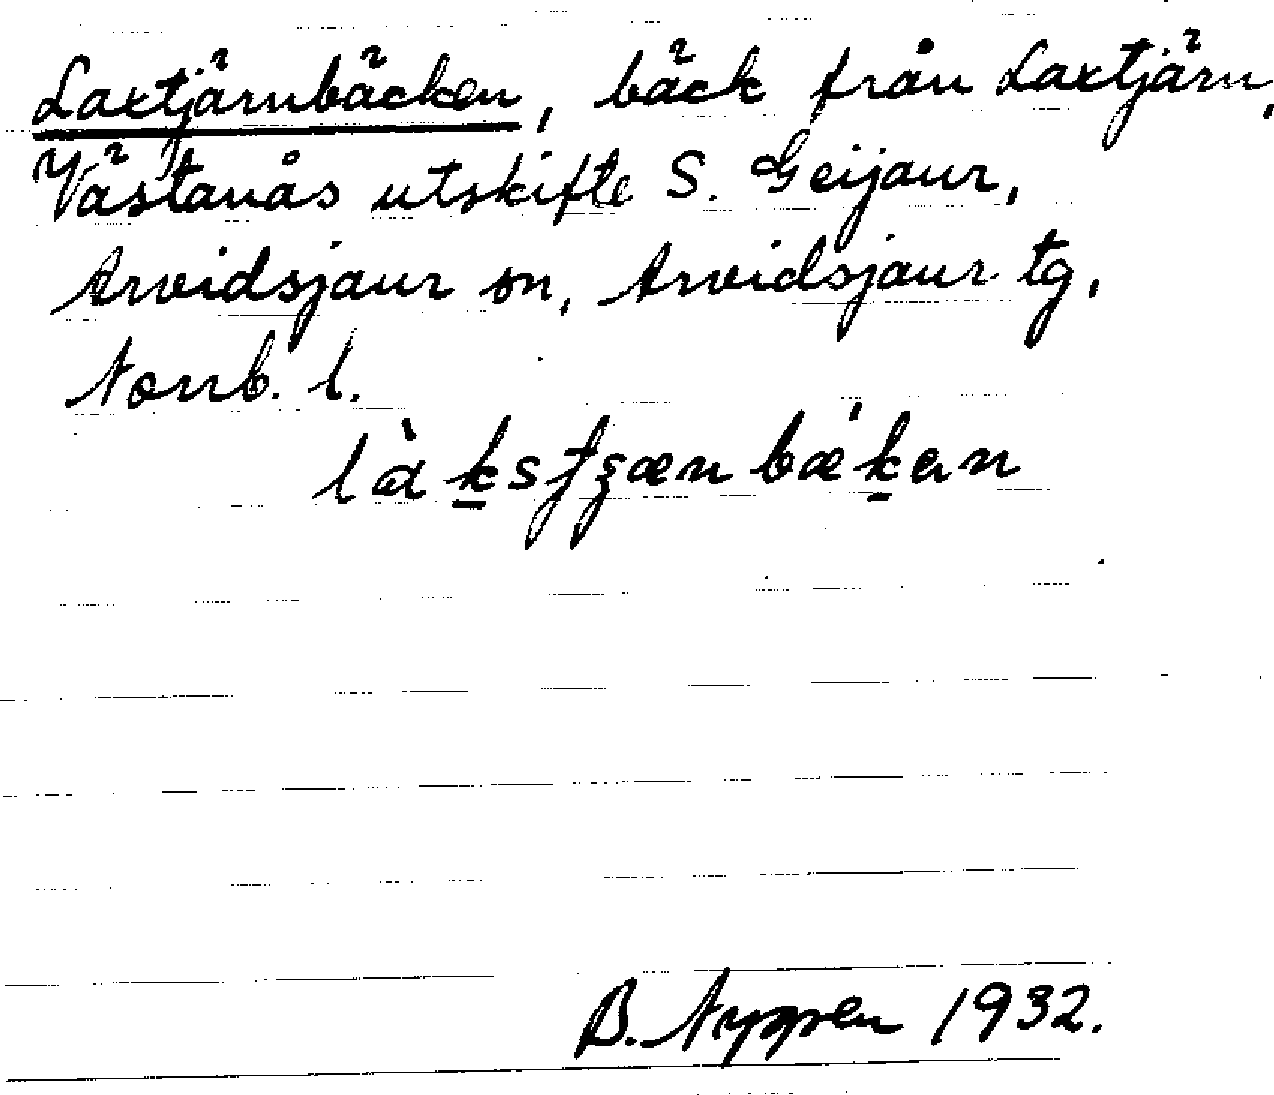 Laxtjärnbäcken, bäck från Laxtjärn,
Västanås utskifte S. Geijaur,
Arvidsjaur sn, Arvidsjaur tg,
Norrb. l.
là<u>k</u>sʃʒæn bǽ<u>k</u>en
B. Nygren 1932.